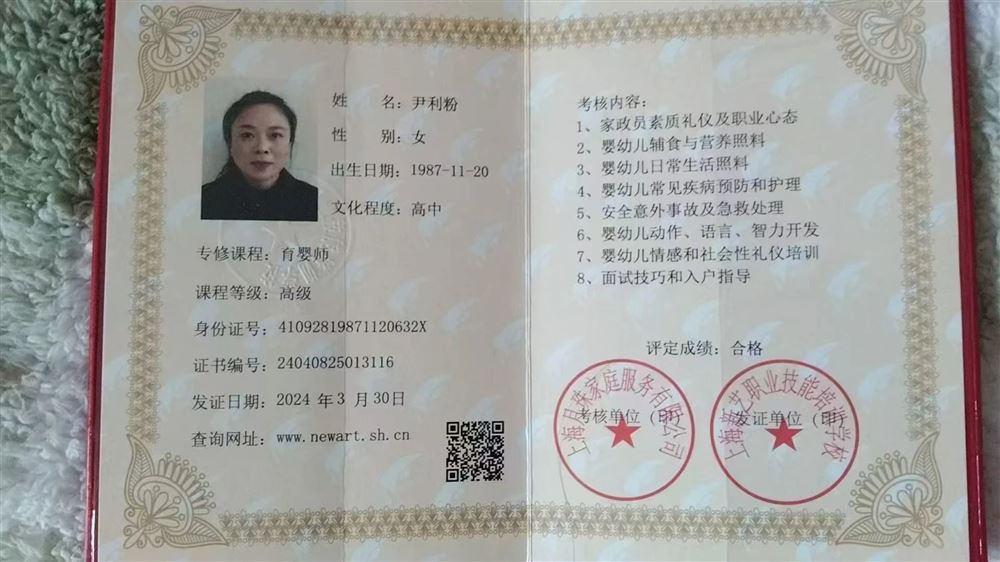 姓 名：尹利粉
性 别：女
出生日期：1987-11-20
文化程度：高中
专修课程：育婴师
课程等级：高级
身份证号：41092819871120632X
证书编号：24040825013116
发证日期：2024 年3 月30日
查询网址：www.newart.sh.cn
考核内容：
1、家政员素质礼仪及职业心态
2、婴幼儿辅食与营养照料
3、婴幼儿日常生活照料
4、婴幼儿常见疾病预防和护理
5、安全意外事故及急救处理
6、婴幼儿动作、语言、智力开发
7、婴幼儿情感和社会性礼仪培训
8、面试技巧和入户指导
评定成绩：合格
考核单位（印）
上海月珠家庭服务有限公司
发证单位（印）
上海 艺职业技能培训学校